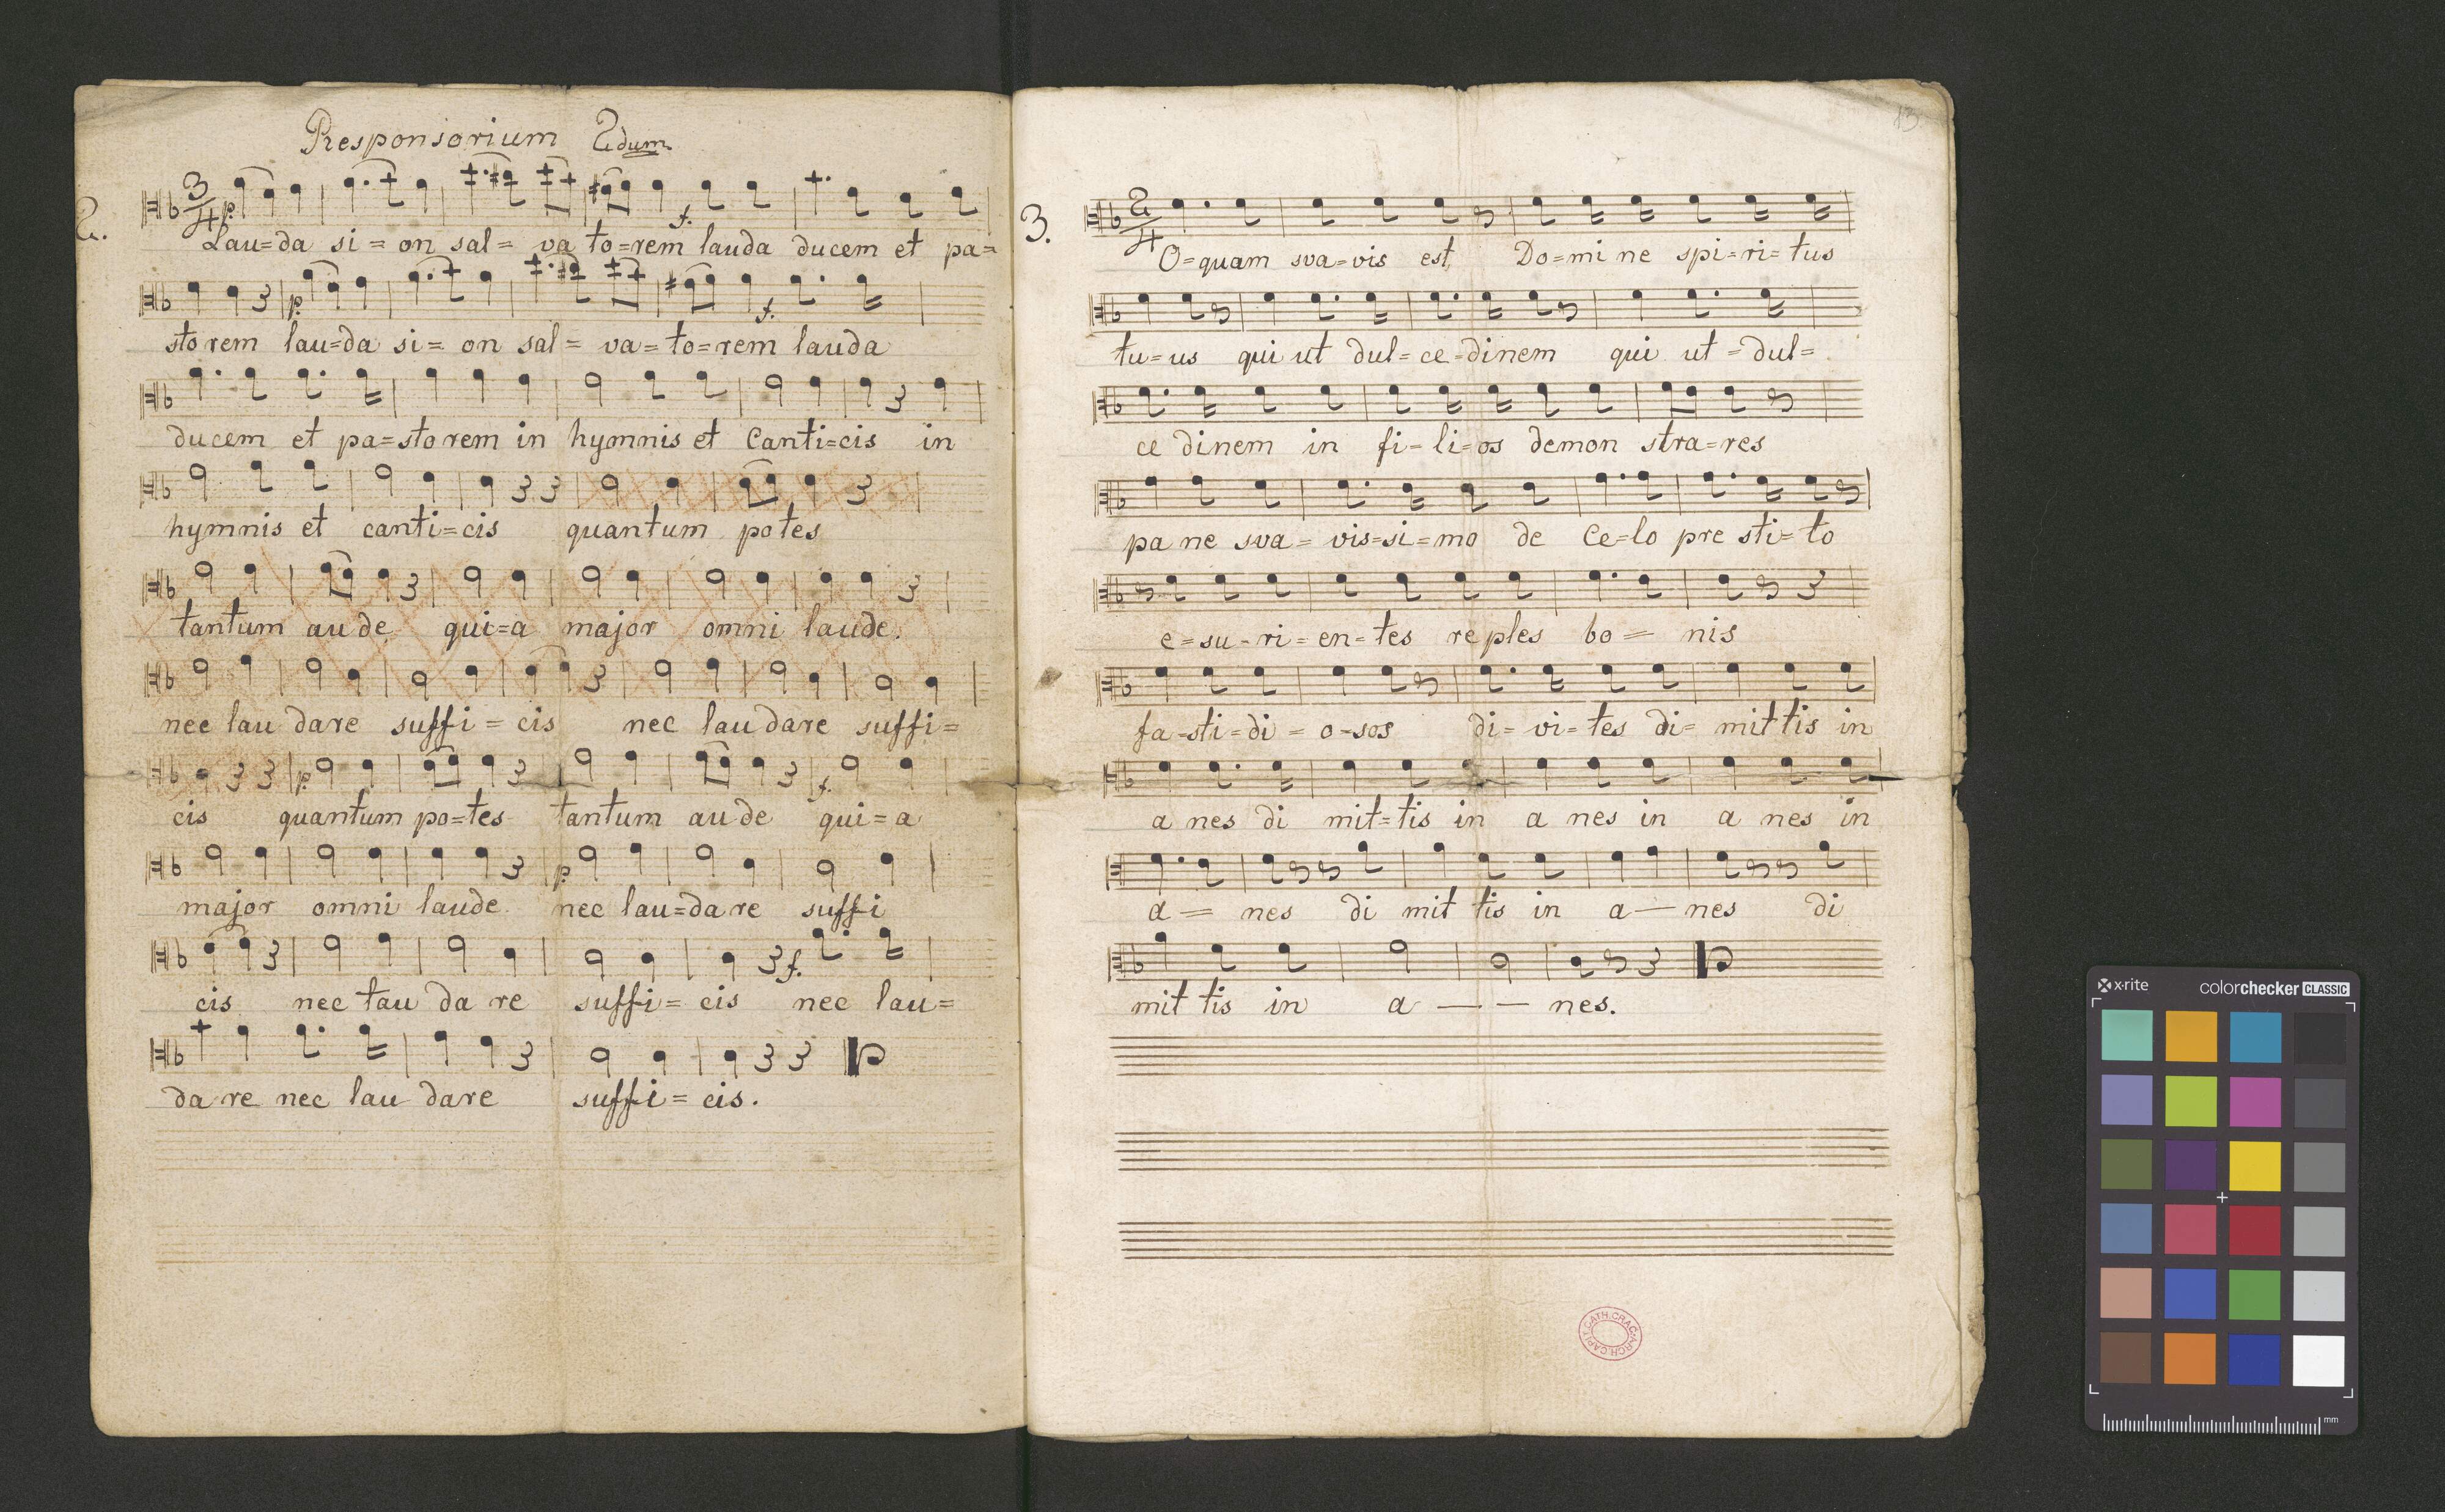 Responsorium 2dum
2.
3/4 p. f.
Lau=da si=on sal=va to=rem lauda ducem et pa=
p. f.
storem lau=da si=on sal=va=to=rem lauda
ducem et pa=storem in hymnis et Canti=cis in
hymnis et canti=cis quantum potes
tantum aude qui=a major omni laude.
nec lau dare suffi=cis nec laudare suffi=
p. f.
cis quantum po=tes tantum aude qui=a
p.
major omni laude nec lau=dare suffi
f.
cis nec lau da re suffi=cis nec lau=
da re nec lau dare suffi=cis.
13.
3.
2/4
O=quam sva=vis est Do=mi ne spi=ri=tus
tu=us qui ut dul=ce=dinem qui ut=dul=
ce dinem in fi=li=os demon stra=res
pa ne sva=vis=si=mo de Ce=lo pre sti=to
e=su-ri=en=tes reples bo= nis
fa=sti=di=o-sos di=vi=tes di=mittis in
a nes di mit=tis in a nes in a nes in
a= nes di mit tis in a— nes di
mit tis in a — — nes.
ARCH. CAPIT. CATH. CRAC.
x·rite colorchecker CLASSIC
mm